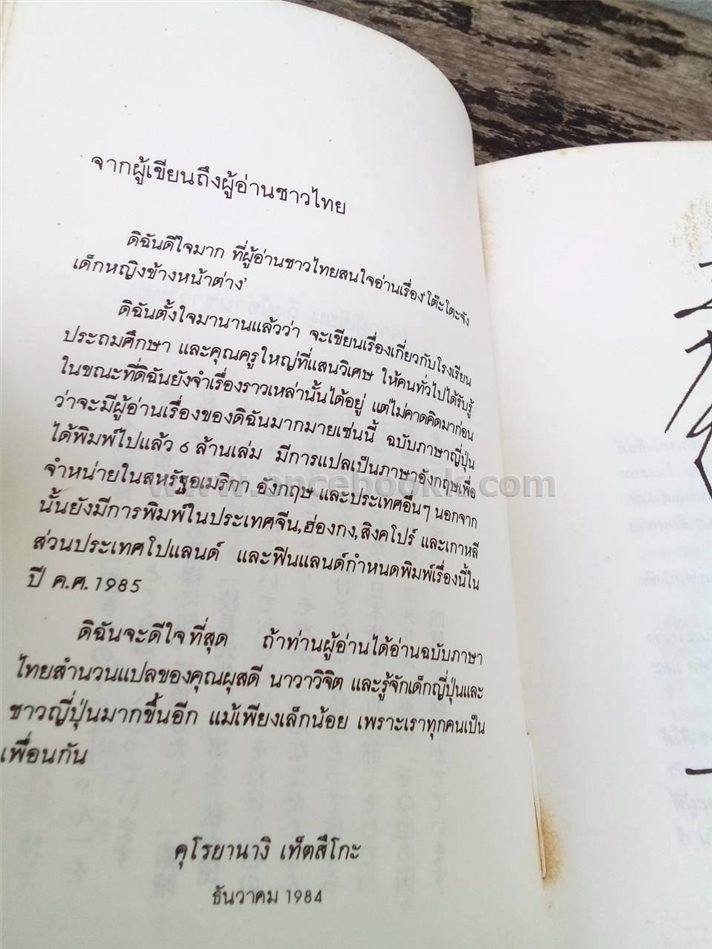 จากผู้เขียนถึงผู้อ่านชาวไทย
ดิฉันดีใจมาก ที่ผู้อ่านชาวไทยสนใจอ่านเรื่อง'โต๊ะโตะจัง
เด็กหญิงข้างหน้าต่าง'
ดิฉันตั้งใจมานานแล้วว่า จะเขียนเรื่องเกี่ยวกับโรงเรียน
ประถมศึกษา และคุณครูใหญ่ที่แสนวิเศษ ให้คนทั่วไปได้รับรู้
ในขณะที่ดิฉันยังจำเรื่องราวเหล่านั้นได้อยู่ แต่ไม่คาดคิดมาก่อน
ว่าจะมีผู้อ่านเรื่องของดิฉันมากมายเช่นนี้ ฉบับภาษาญี่ปุ่น
ได้พิมพ์ไปแล้ว ๖ ล้านเล่ม มีการแปลเป็นภาษาอังกฤษเพื่อ
จำหน่ายในสหรัฐอเมริกา อังกฤษ และประเทศอื่นๆ นอกจาก
นั้นยังมีการพิมพ์ในประเทศจีน,ฮ่องกง,สิงคโปร์ และเกาหลี
ส่วนประเทศโปแลนด์ และฟินแลนด์กำหนดพิมพ์เรื่องนี้ใน
ปี ค.ศ. 1985
ดิฉันจะดีใจที่สุด ถ้าท่านผู้อ่านได้อ่านฉบับภาษา
ไทยสำนวนแปลของคุณผุสดี นาวาวิจิต และรู้จักเด็กญี่ปุ่นและ
ชาวญี่ปุ่นมากขึ้นอีก แม้เพียงเล็กน้อย เพราะเราทุกคนเป็น
เพื่อนกัน
คุโรยานางิ เท็ตสึโกะ
ธันวาคม 1984